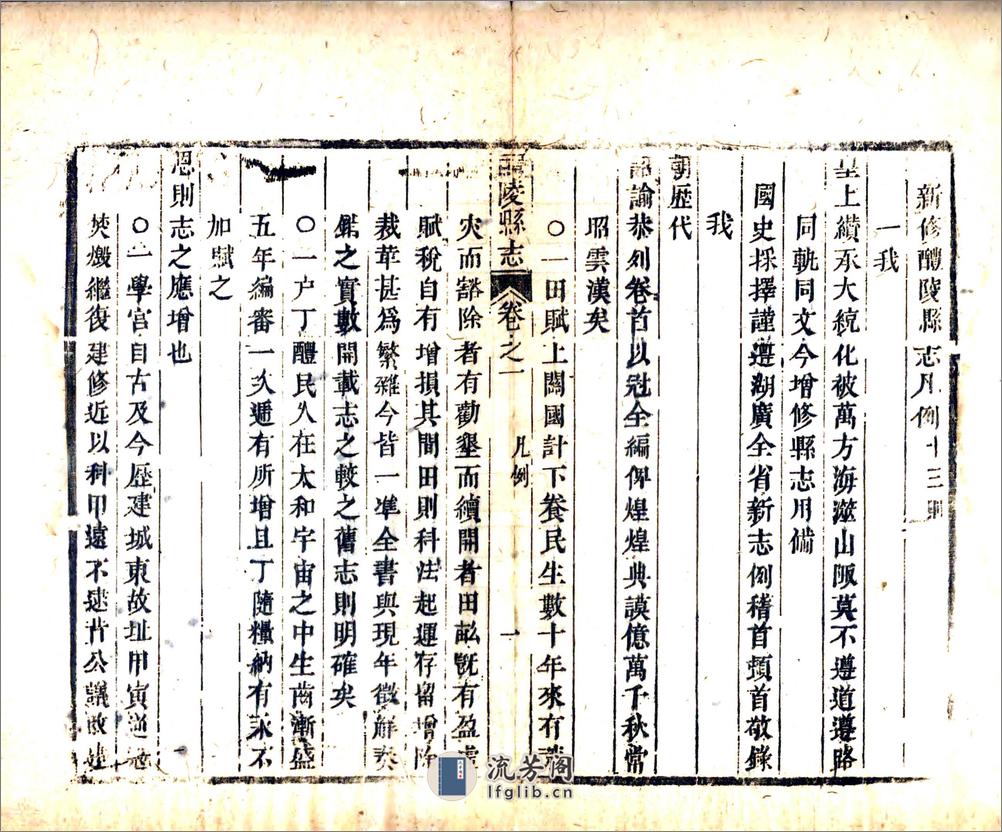 新修醴陵縣志凡例十三則
一我
皇上纘承大統化被萬方海澨山陬莫不遵道遵路
同軌同文今增修縣志用備
國史採擇謹遵湖廣全省新志例稽首頓首敬錄
我
朝歷代
詔諭恭列卷首以冠全編俾煌煌典謨億萬千秋常
昭雲漢矣
○一田賦上關國計下養民生數十年來有
醴陵縣志 卷之一 凡例 一
灾而豁除者有勸墾而續開者田畝既有盈虛
賦稅自有增損其間田則科法起運存留增除
裁革甚爲繁雜今皆一準全書與現年徵解奏
之實數開載志之較之舊志則明確矣
○一户丁醴民人在太和宇宙之中生齒漸盛
五年編審一次遞有所增且丁隨糧納有永不
加賦之
恩則志之應增也
○一學宮自古及今歷建城東故址甲寅
焚燬繼復建修近以科甲遠不逮昔公議改建
流芳閣
lfglib.cn